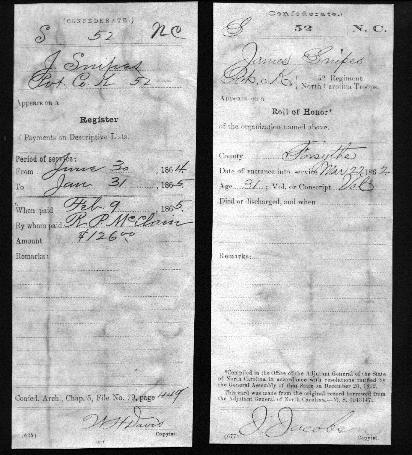 (CONFEDERATE.)
S 52 NC
J Snipes
Pvt Co. K 52
Appears on a
Register
of Payments on Descriptive Lists.
Period of service:
From June 30, 1864
To Jan 31, 1865
When paid Feb 9, 1865.
By whom paid R. P. McClain
Amount $126.00
Remarks:
Confed. Arch., Chap. 5, File No. page 449
W H Davis
Copyist.
Confederate.
S 52 N. C.
James Snipes
Co. K, 52 Regiment
North Carolina Troops.
Appears on a
Roll of Honor*
of the organization named above.
County Forsythe
Date of entrance into service Mar 22 1862
Age 31; Vol. or Conscript Vol
Died or discharged, and when
Remarks:
*Compiled in the Office of the Adjutant General of the State
of North Carolina in accordance with resolutions ratified by
the General Assembly of that State on December 20, 1862.
This card was made from the original record borrowed from
the Adjutant General of North Carolina.
J. Jacobs
Copyist.